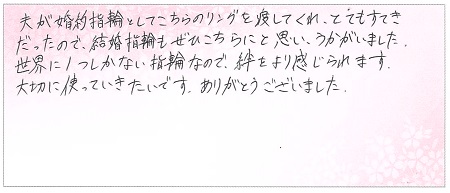 夫が婚約指輪としてこちらのリングを渡してくれ、とてもすてき
だったので、結婚指輪もぜひこちらにと思い、うかがいました.
世界に1つしかない指輪なので、絆をより感じられます.
大切に使っていきたいです. ありがとうございました.